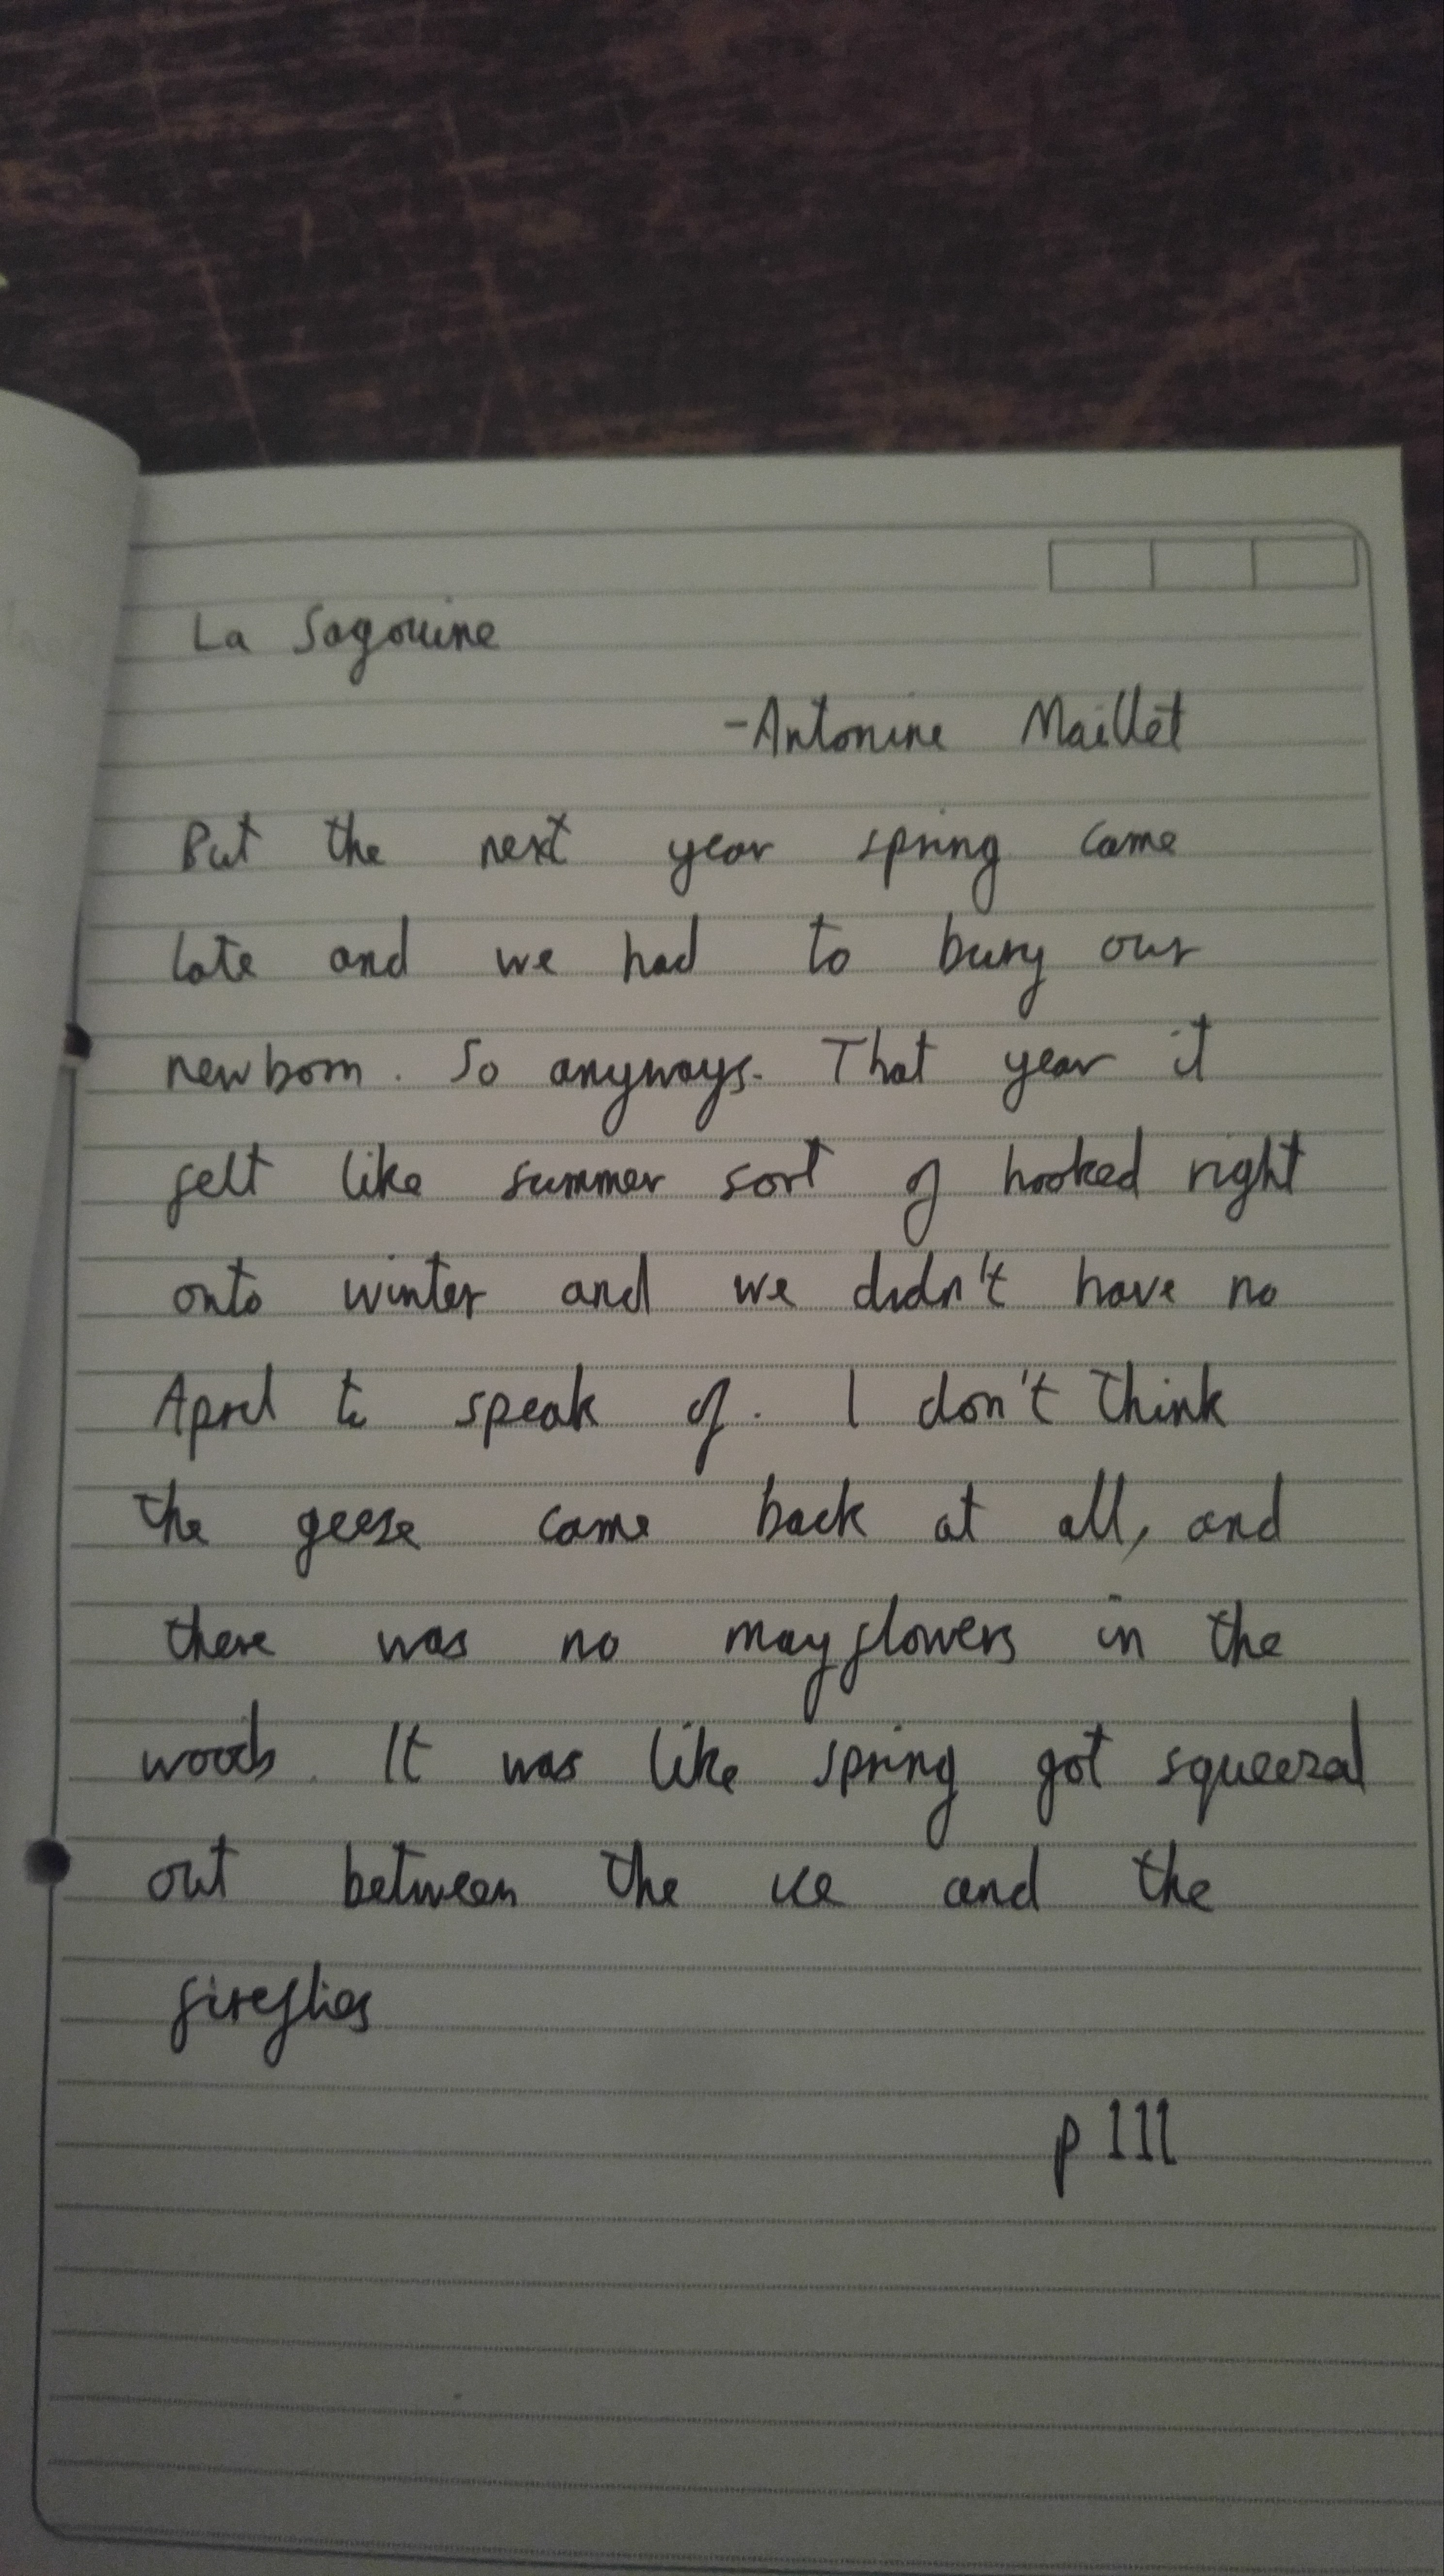 La Sagouine
-Antonine Maillet
But the next year spring came
late and we had to bury our
newborn. So anyways. That year it
felt like summer sort of hooked right
onto winter and we didn't have no
April to speak of. I don't think
the geese came back at all, and
there was no mayflowers in the
woods. It was like spring got squeezed
out between the ice and the
fireflies
p 111